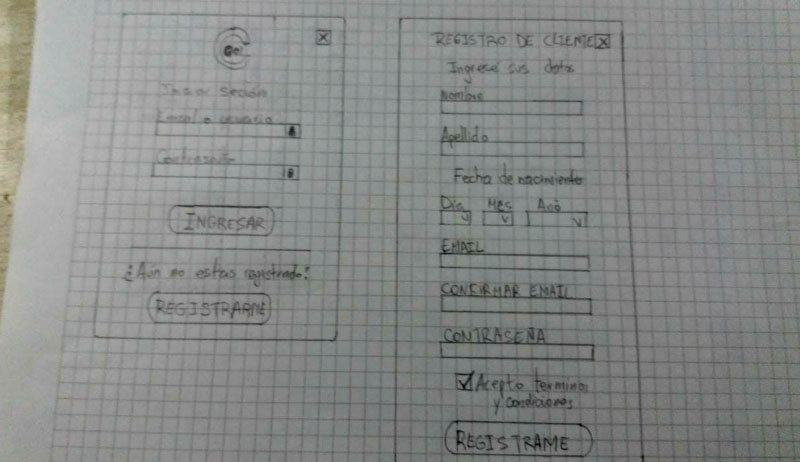 Go!
X
Iniciar Seción
Email o usuario
Contraseña
INGRESAR
¿Aún no estas registrado?
REGISTRARME
REGISTRO DE CLIENTE X
Ingrese sus datos
Nombre
Apellido
Fecha de nacimiento
Dia Mes Año
EMAIL
CONFIRMAR EMAIL
CONTRASEÑA
Acepto terminos
y condiciones
REGISTRAME